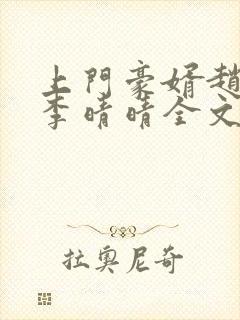 上門豪婿趙
李晴晴全文
拉奧尼奇